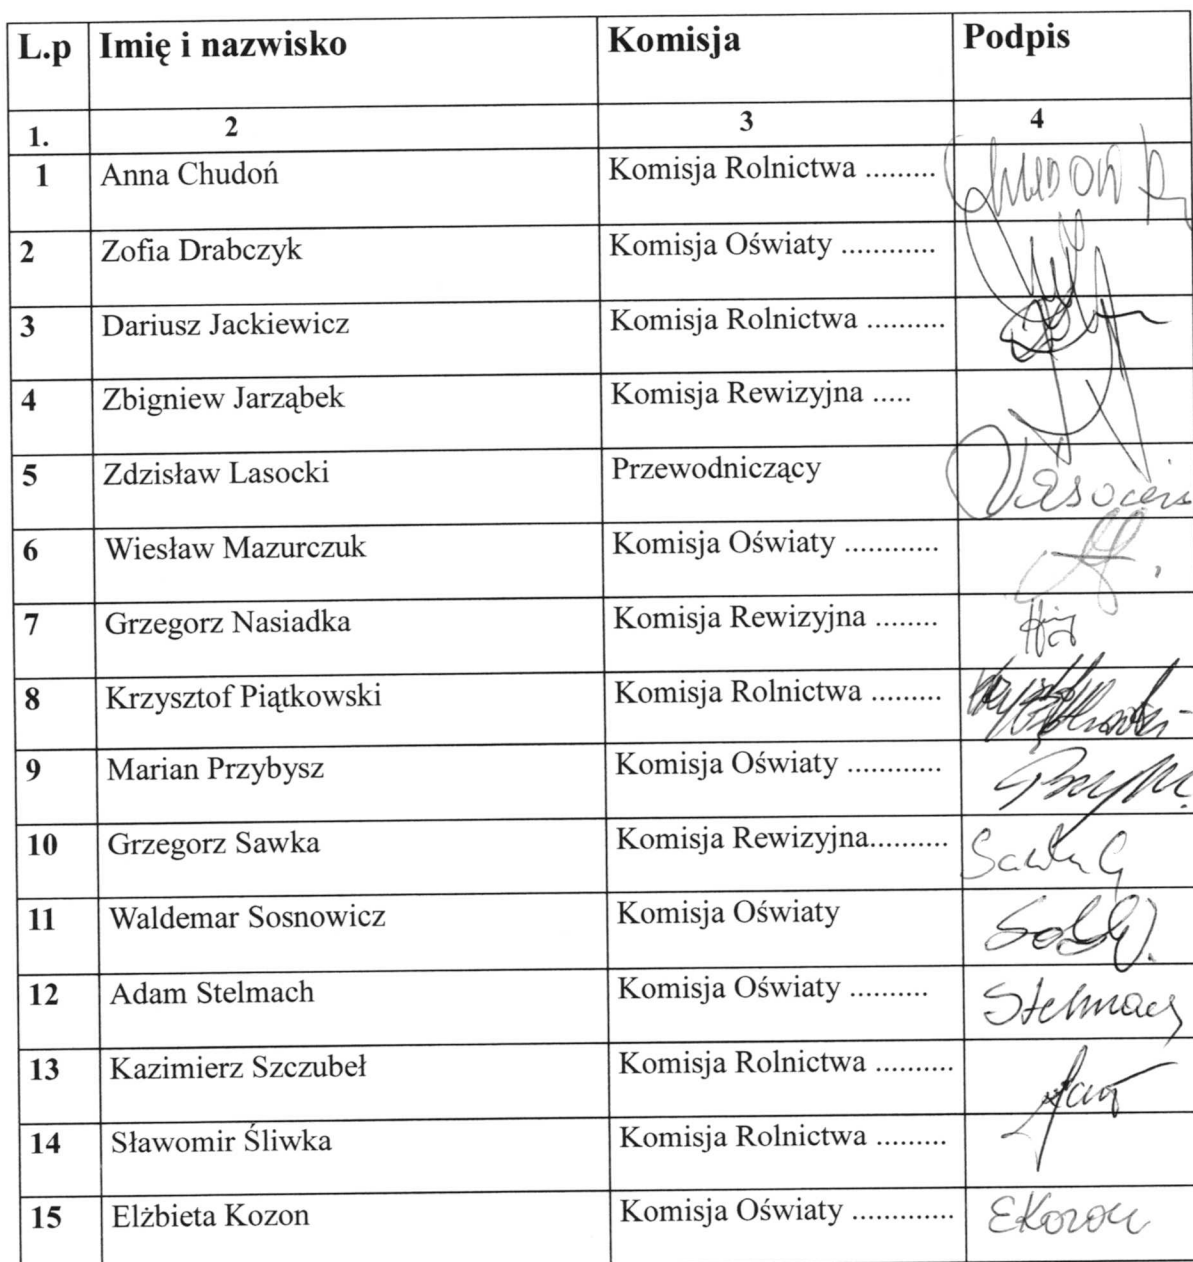 L.p Imię i nazwisko Komisja Podpis
1. 2 3 4
1 Anna Chudoń Komisja Rolnictwa .........
2 Zofia Drabczyk Komisja Oświaty ............
3 Dariusz Jackiewicz Komisja Rolnictwa ..........
4 Zbigniew Jarząbek Komisja Rewizyjna .....
5 Zdzisław Lasocki Przewodniczący
6 Wiesław Mazurczuk Komisja Oświaty ............
7 Grzegorz Nasiadka Komisja Rewizyjna ........
8 Krzysztof Piątkowski Komisja Rolnictwa .........
9 Marian Przybysz Komisja Oświaty ............
10 Grzegorz Sawka Komisja Rewizyjna.......... Sawka G
11 Waldemar Sosnowicz Komisja Oświaty
12 Adam Stelmach Komisja Oświaty .......... Stelmach
13 Kazimierz Szczubeł Komisja Rolnictwa ..........
14 Sławomir Śliwka Komisja Rolnictwa .........
15 Elżbieta Kozon Komisja Oświaty ............. EKozon